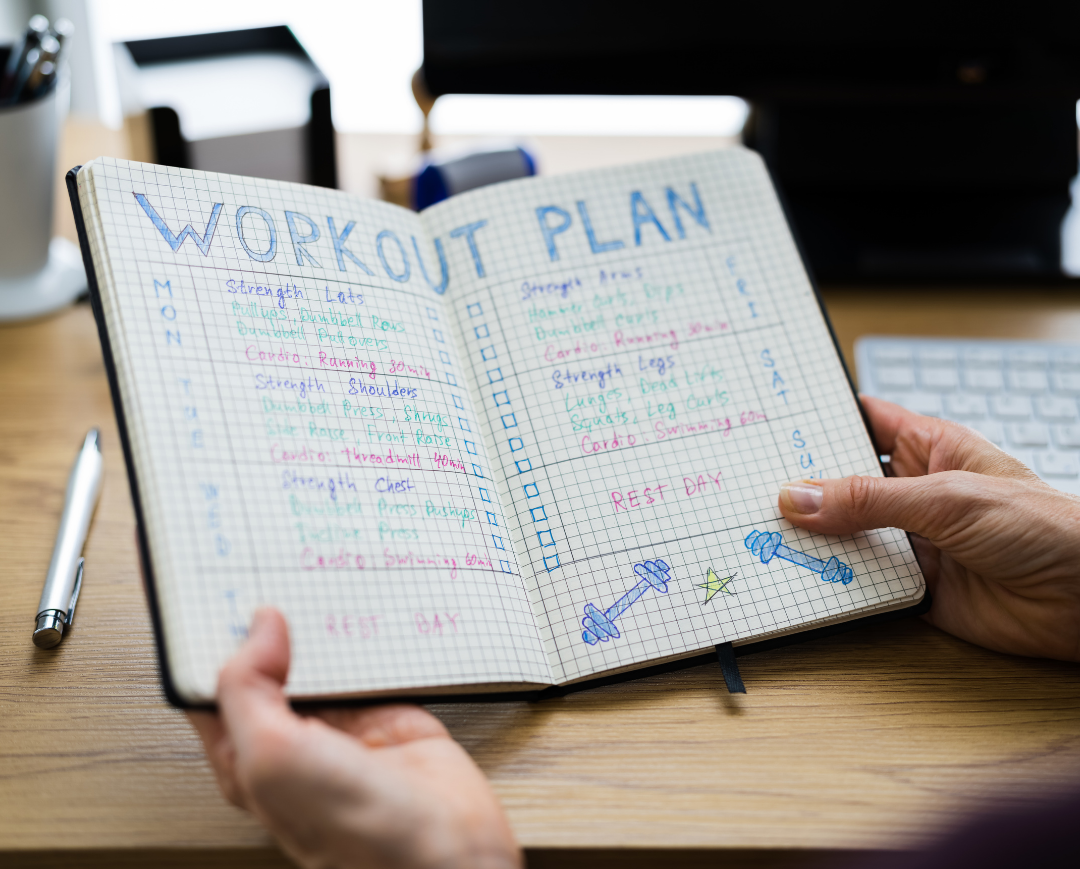 WORKOUT PLAN
MON
Strength Lats
Pullups, Dumbbell Rows
Dumbbell Pullovers
Cardio: Running 30min
TUE
Strength Shoulders
Dumbbell Press, Shrugs
Side Raise, Front Raise
Cardio: Threadmill 40min
WED
Strength Chest
Dumbbell Press, Pushups
Press
Cardio Swimming 60min
REST DAY
FRI
Strength Arms
Hammer Curls,
Dumbbell Curls
Cardio: Running 30min
SAT
Strength Legs
Lunges, Dead Lifts
Squats, Leg Curls
Cardio: Swimming 60m
SU
REST DAY